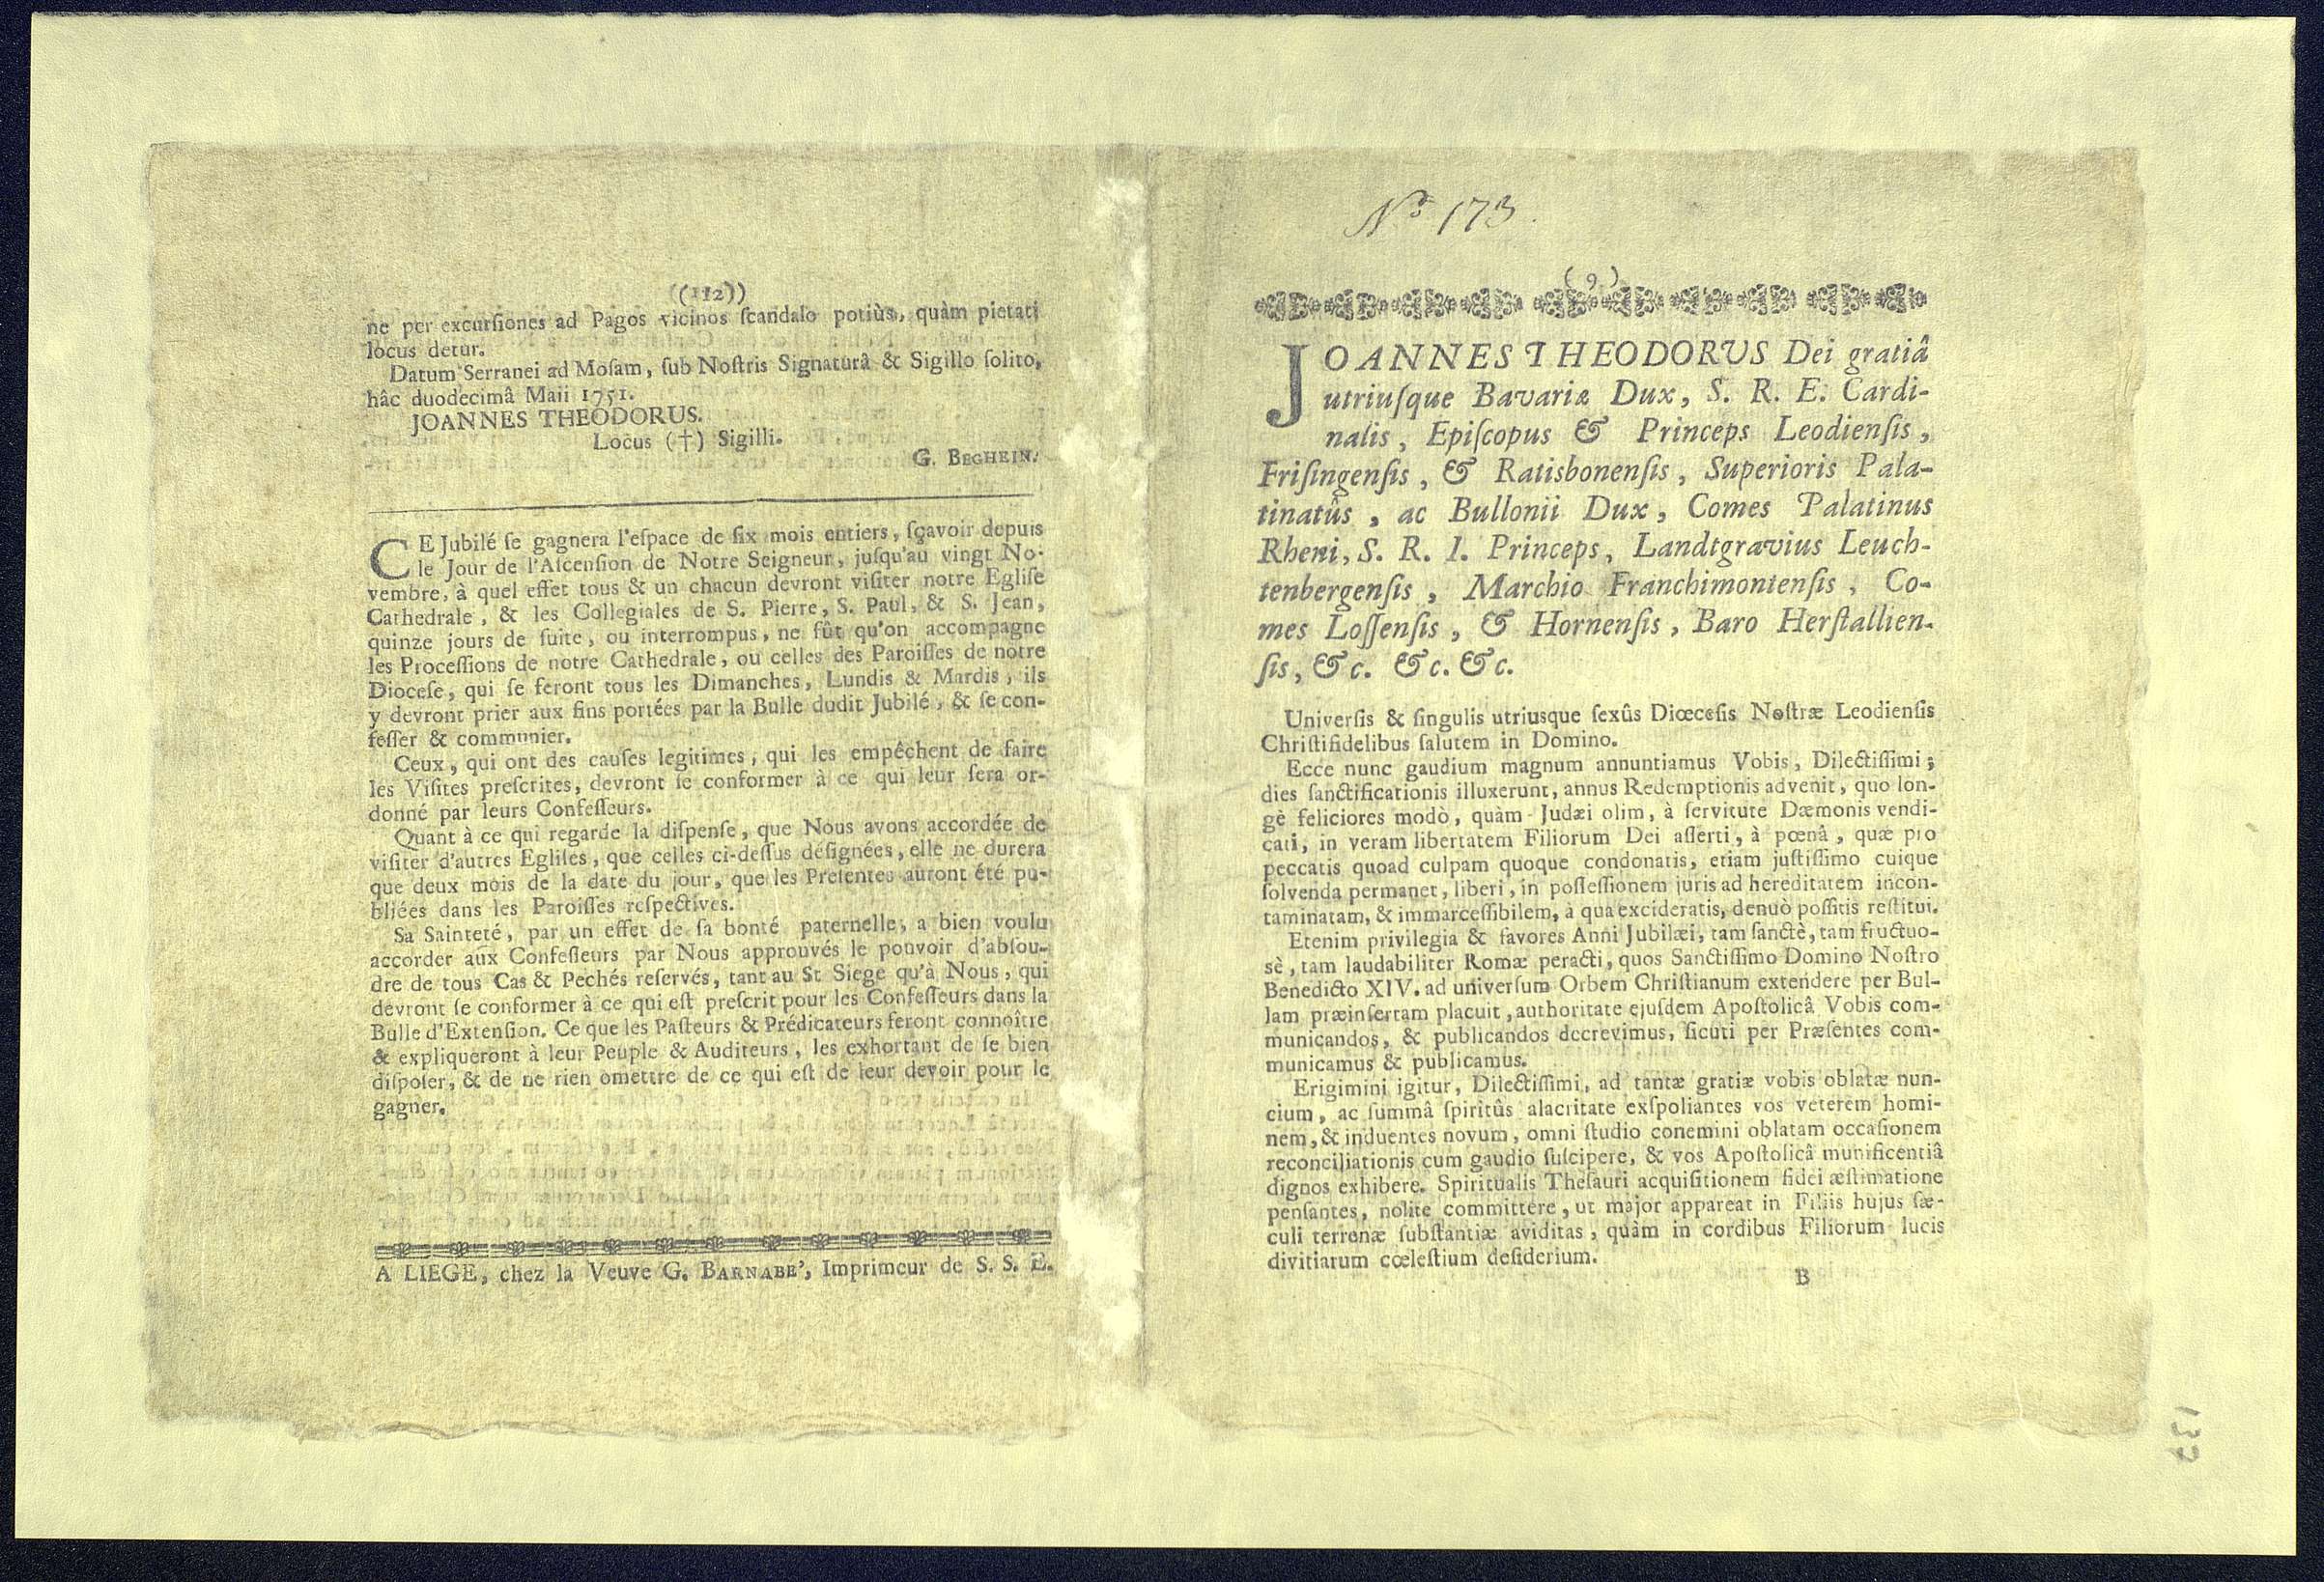 ((112))
ne per excursiones ad Pagos vicinos ſcandalo potiùs, quàm pietati
locus detur.
Datum Serranei ad Moſam, ſub Noſtris Signaturâ & Sigillo ſolito,
hâc duodecimâ Maii 1751.
JOANNES THEODORUS.
Locus (†) Sigilli.
G. BEGHEIN.
CE Jubilé ſe gagnera l'eſpace de ſix mois entiers, ſçavoir depuis
le Jour de l'Aſcenſion de Notre Seigneur, juſqu'au vingt No-
vembre, à quel effet tous & un chacun devront viſiter notre Egliſe
Cathedrale, & les Collegiales de S. Pierre, S. Paul, & S. Jean,
quinze jours de ſuite, ou interrompus, ne fût qu'on accompagne
les Proceſſions de notre Cathedrale, ou celles des Paroiſſes de notre
Dioceſe, qui ſe feront tous les Dimanches, Lundis & Mardis, ils
y devront prier aux fins portées par la Bulle dudit Jubilé, & ſe con-
feſſer & communier.
Ceux, qui ont des cauſes legitimes, qui les empêchent de faire
les Viſites preſcrites, devront ſe conformer à ce qui leur ſera or-
donné par leurs Confeſſeurs.
Quant à ce qui regarde la diſpenſe, que Nous avons accordée de
viſiter d'autres Egliſes, que celles ci-deſſus déſignées, elle ne durera
que deux mois de la date du jour, que les Preſentes auront été pu-
bliées dans les Paroiſſes reſpectives.
Sa Sainteté, par un effet de ſa bonté paternelle, a bien voulu
accorder aux Confeſſeurs par Nous approuvés le pouvoir d'abſou-
dre de tous Cas & Pechés reſervés, tant au St Siege qu'à Nous, qui
devront ſe conformer à ce qui eſt preſcrit pour les Confeſſeurs dans la
Bulle d'Extenſion. Ce que les Paſteurs & Prédicateurs feront connoître
& expliqueront à leur Peuple & Auditeurs, les exhortant de ſe bien
diſpoſer, & de ne rien omettre de ce qui eſt de leur devoir pour le
gagner.
A LIEGE, chez la Veuve G. BARNABE', Imprimeur de S. S. E.
No 173.
(9)
JOANNES THEODORUS Dei gratiâ
utriuſque Bavariæ Dux, S. R. E. Cardi-
nalis, Epiſcopus & Princeps Leodienſis,
Friſingenſis, & Ratisbonenſis, Superioris Pala-
tinatûs, ac Bullonii Dux, Comes Palatinus
Rheni, S. R. I. Princeps, Landtgravius Leuch-
tenbergenſis, Marchio Franchimontenſis, Co-
mes Loſſenſis, & Hornenſis, Baro Herſtallien-
ſis, &c. &c. &c.
Univerſis & ſingulis utriusque ſexûs Diœceſis Noſtræ Leodienſis
Chriſtifidelibus ſalutem in Domino.
Ecce nunc gaudium magnum annuntiamus Vobis, Dilectiſſimi;
dies ſanctificationis illuxerunt, annus Redemptionis advenit, quo lon-
gè feliciores modò, quàm Judæi olim, à ſervitute Dæmonis vendi-
cati, in veram libertatem Filiorum Dei aſſerti, à pœnâ, quæ pro
peccatis quoad culpam quoque condonatis, etiam juſtiſſimo cuique
ſolvenda permanet, liberi, in poſſeſſionem juris ad hereditatem incon-
taminatam, & immarceſſibilem, à qua excideratis, denuò poſſitis reſtitui.
Etenim privilegia & favores Anni Jubilæi, tam ſanctè, tam fructuo-
sè, tam laudabiliter Romæ peracti, quos Sanctiſſimo Domino Noſtro
Benedicto XIV. ad univerſum Orbem Chriſtianum extendere per Bul-
lam præinſertam placuit, authoritate ejuſdem Apoſtolicâ Vobis com-
municandos, & publicandos decrevimus, ſicuti per Præſentes com-
municamus & publicamus.
Erigimini igitur, Dilectiſſimi, ad tantæ gratiæ vobis oblatæ nun-
cium, ac ſummâ ſpiritûs alacritate exſpoliantes vos veterem homi-
nem, & induentes novum, omni ſtudio conemini oblatam occaſionem
reconciliationis cum gaudio ſuſcipere, & vos Apoſtolicâ munificentiâ
dignos exhibere. Spiritualis Theſauri acquiſitionem fidei æſtimatione
penſantes, nolite committere, ut major appareat in Filiis hujus ſæ-
culi terrenæ ſubſtantiæ aviditas, quàm in cordibus Filiorum lucis
divitiarum cœleſtium deſiderium.
B